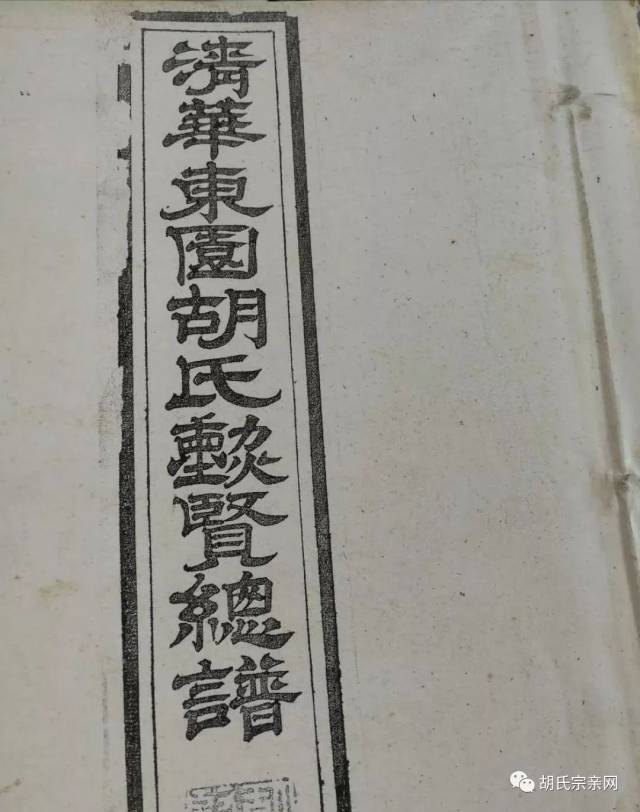 清華東園胡氏勲賢總譜
胡氏宗亲网